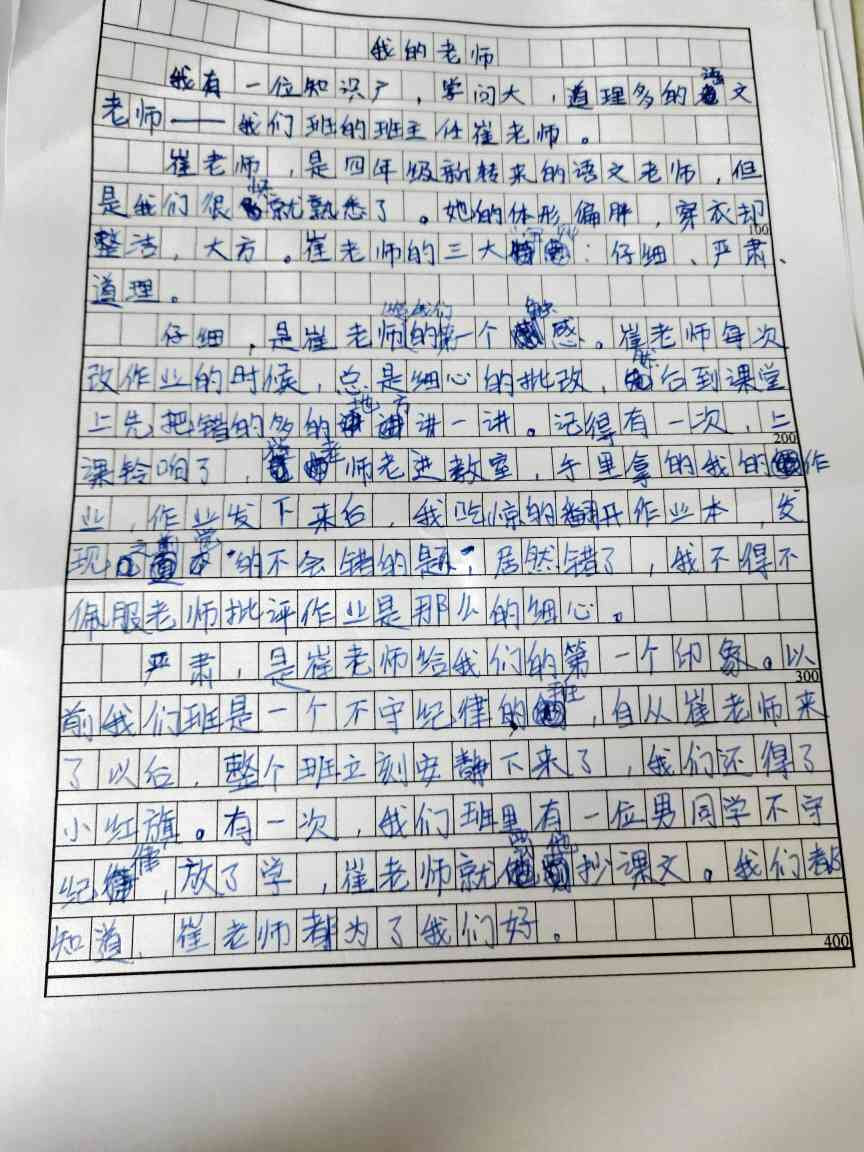 我的老师
我有一位知识广，学问大，道理多的语文
老师——我们班的班主任崔老师。
崔老师，是四年级新转来的语文老师，但
是我们很快就熟悉了。她的体形偏胖，穿衣却
100
整洁，大方。崔老师的三大：仔细、严肃、
道理。
仔细，是崔老师给我们的第一个触感。崔老师每次
改作业的时候，总是细心的批改，然后到课堂
上先把错的多的地方讲一讲。记得有一次，上
200
课铃响了，崔老师老进教室，手里拿的我的作
业，作业发下来后，我吃惊的翻开作业本，发
现"的不会错的题"，居然错了，我不得不
佩服老师批评作业是那么的细心。
严肃，是崔老师给我们的第一个印象。以
300
前我们班是一个不守纪律的班，自从崔老师来
了以后，整个班立刻安静下来了，我们还得了
小红旗。有一次，我们班里有一位男同学不守
纪律，放了学，崔老师就罚他抄课文。我们都
知道，崔老师都为了我们好。
400